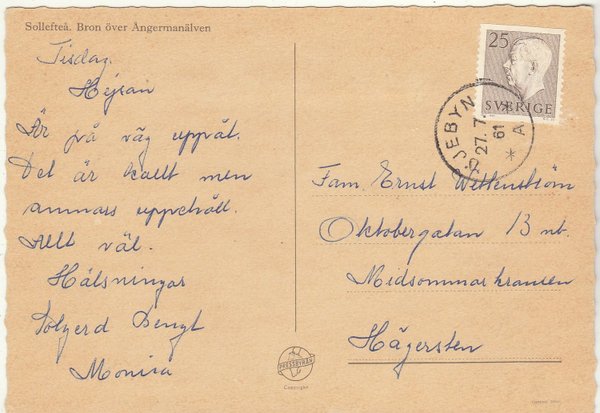 Sollefteå. Bron över Ångermanälven
Tisdag.
Hejsan
Är på väg uppåt.
Det är kallt men
annars uppehåll.
Allt väl.
Hälsningar
Solgerd Bengt
Monica
25
SVERIGE
ÖJEBYN
27.7.
61
A
Fam. Ernst Wettenström
Oktobergatan 13 nb.
Midsommarkransen
Hägersten
PRESSBYRÅN
Copyright